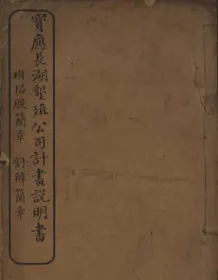 寶應長湖墾殖公司計畫説明書
附招股簡章 創辦簡章